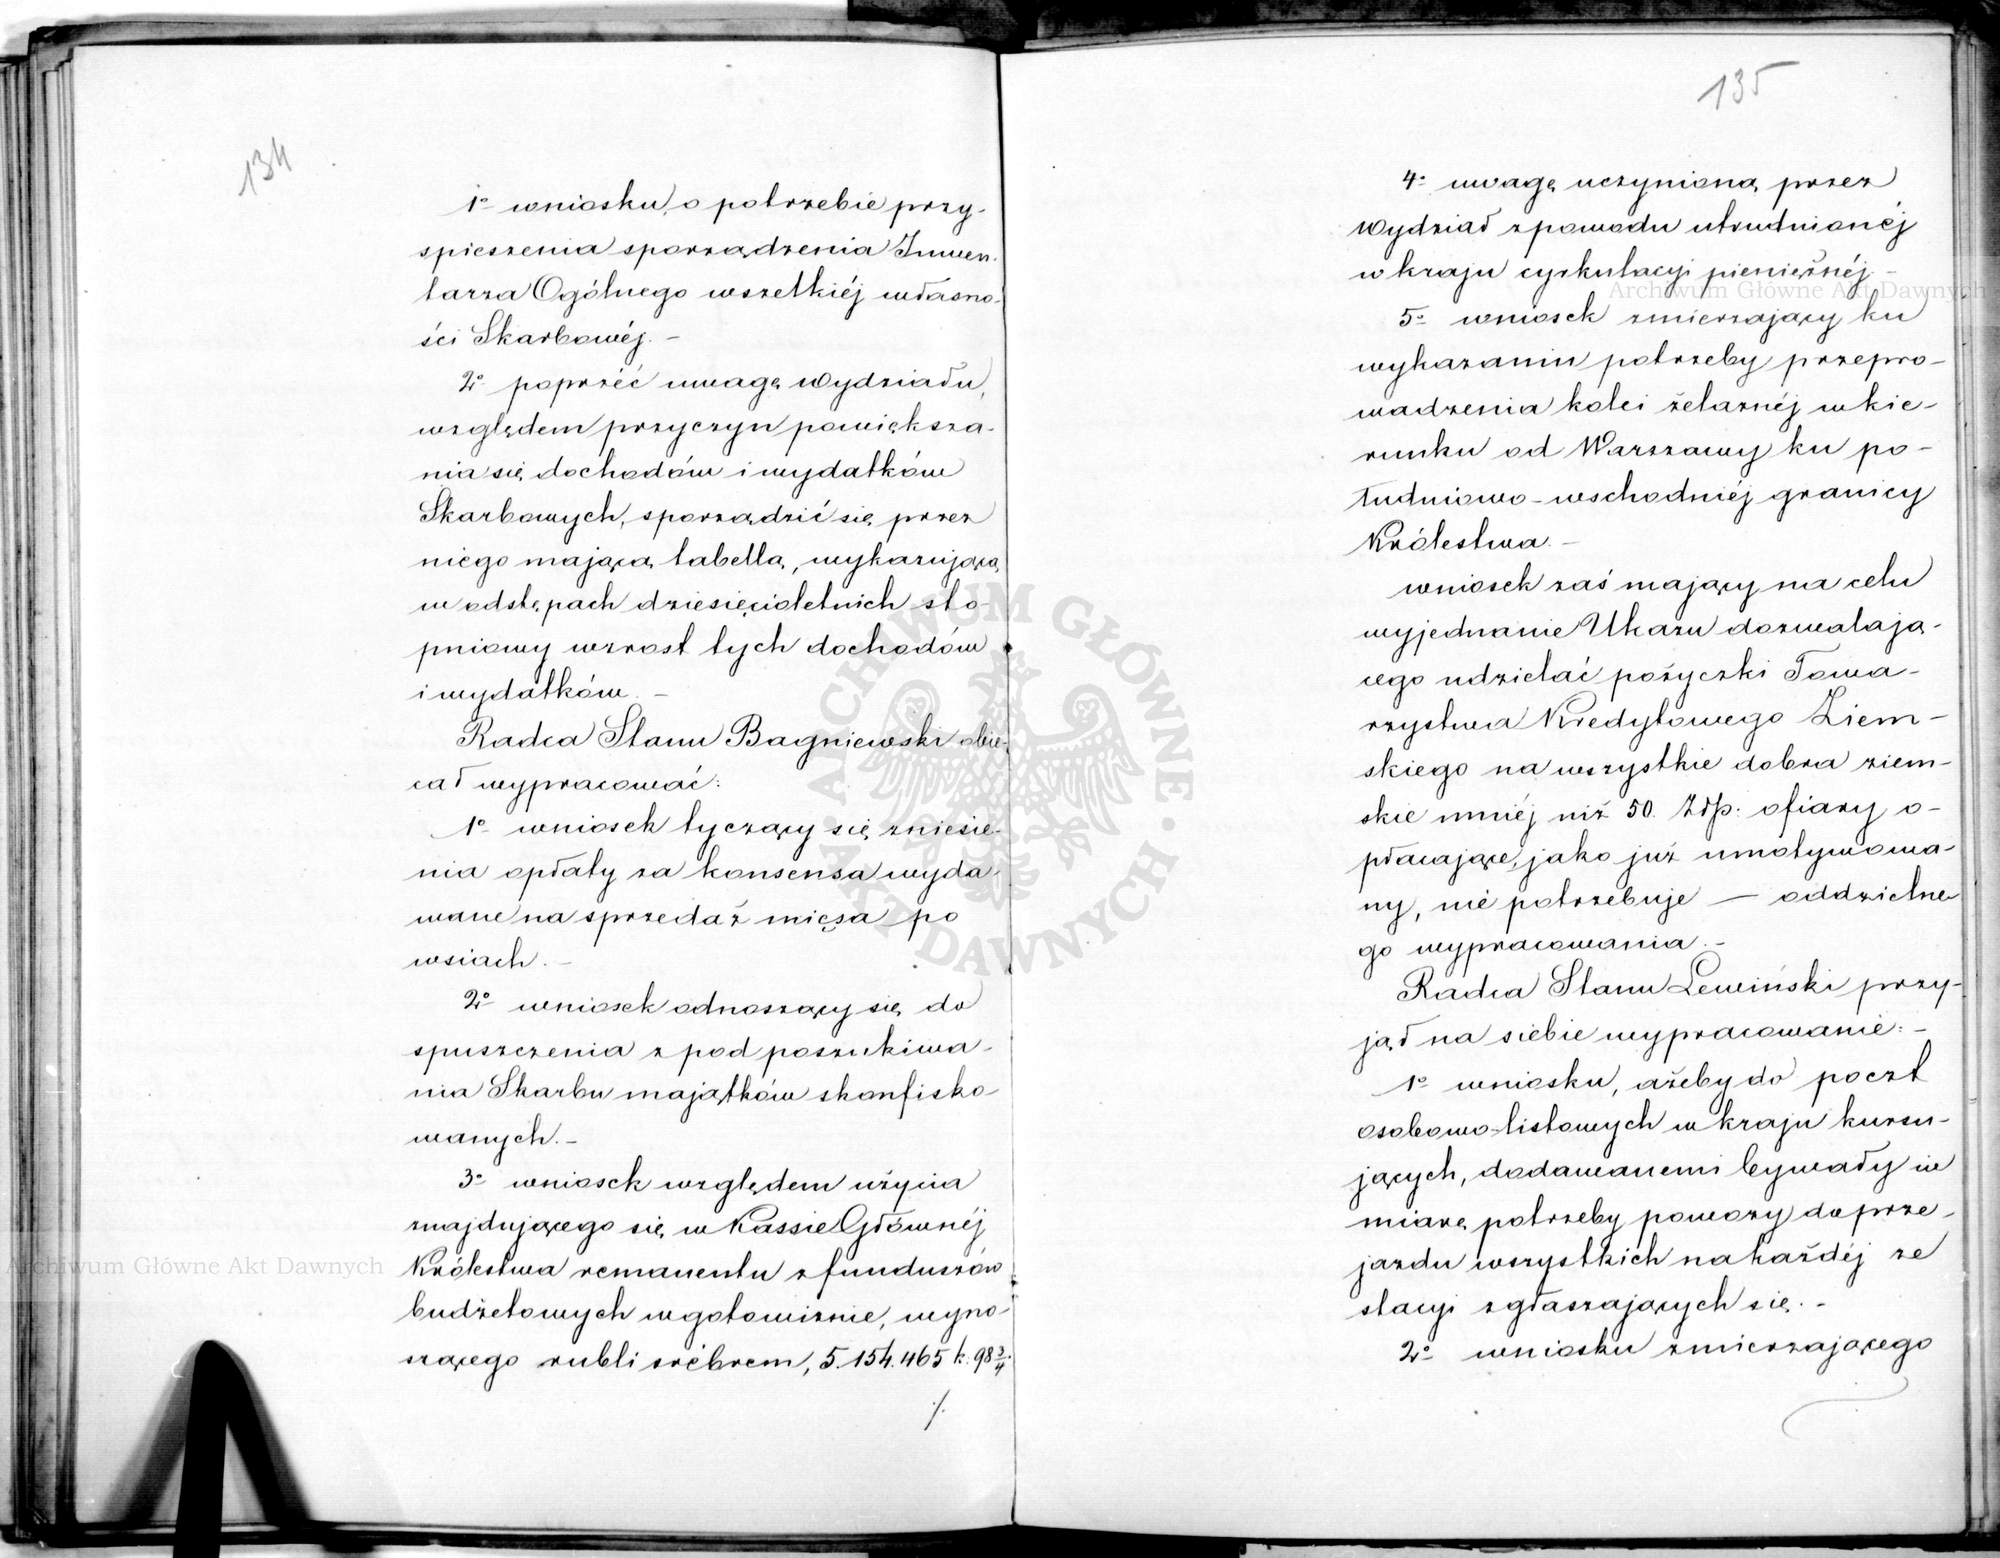 134
1º wniosku, o potrzebie przy-
spieszenia sporządzenia Inwen-
tarza Ogólnego wszelkiéj własno-
ści Skarbowéj. –
2º poprzéć uwagę Wydziału,
względem przyczyn powiększa-
nia się dochodów i wydatków
Skarbowych, sporządzić się przez
niego mającą tabellą, wykazującą
w odstępach dziesięcioletnich sto-
pniowy wzrost tych dochodów
i wydatków. –
Radca Stanu Bagniewski obie-
cał wypracować:
1º wniosek tyczący się zniesie-
nia opłaty za konsensa wyda-
wane na sprzedaż mięsa po
wsiach. –
2º wniosek odnoszący się do
spuszczenia z pod poszukiwa-
nia Skarbu majątków skonfisko-
wanych. –
3º wniosek względem użycia
znajdującego się w Kassie Głównéj
Królestwa remanentu z funduszów
budżetowych w gotowiznie, wyno-
szącego rubli srébrem, 5.154.465 k. 98 3/4.
/.
135
4º uwagę uczynioną przez
Wydział z powodu utrudnionéj
w kraju cyrkulacyi pieniężnéj. –
5º wniosek zmierzający ku
wykazaniu potrzeby przepro-
wadzenia kolei żelaznéj w kie-
runku od Warszawy ku po-
łudniowo-wschodniéj granicy
Królestwa. –
Wniosek zaś mający na celu
wyjednanie Ukazu dozwalają-
cego udzielać pożyczki Towa-
rzystwa Kredytowego Ziem-
skiego na wszystkie dobra ziem-
skie mniéj niż 50. Złp: ofiary o-
płacające, jako już umotywowa-
ny, nie potrzebuje — oddzielne-
go wypracowania. –
Radca Stanu Lewiński przy-
jął na siebie wypracowanie: –
1º wniosku, ażeby do poczt
osobowo-listowych w kraju kursu-
jących, dodawanemi bywały w
miarę potrzeby powozy do prze-
jazdu wszystkich na każdéj ze
stacyi zgłaszających się. –
2º wniosku zmierzającego
Archiwum Główne Akt Dawnych
Archiwum Główne Akt Dawnych
ARCHIWUM GŁÓWNE AKT DAWNYCH